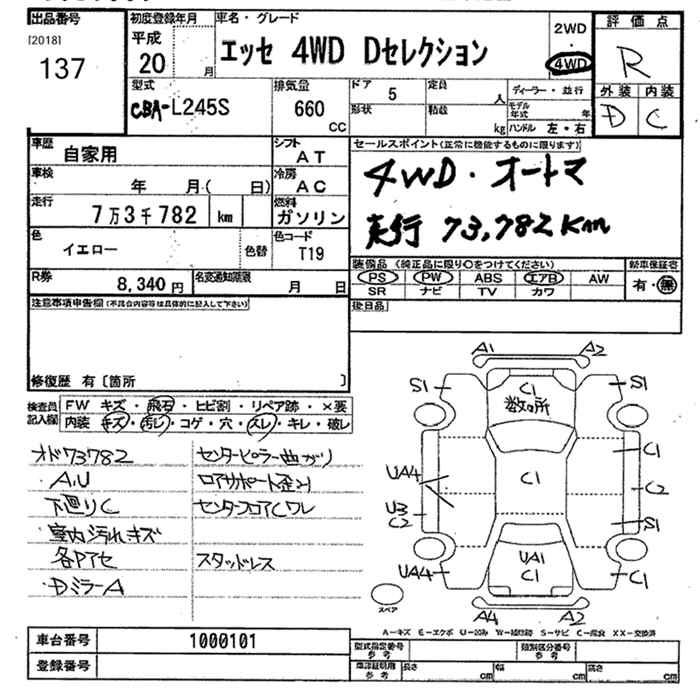 出品番号 初度登録年月 車名・グレード 2WD 評価点
[2018] 平成 ・
137 20 月 エッセ 4WD Dセレクション 4WD R
型式 排気量 ドア 5 定員 人 ディーラー・並行 外装 内装
CBA-L245S 660 CC 形状 積載 kg モデル年式 年 D C
ハンドル 左・右
車歴 自家用 シフト AT セールスポイント(正常に機能するものに限ります)
車検 年 月( 日) 冷房 AC 4WD・オートマ
走行 7万3千782 km 燃料 ガソリン 走行 73,782Km
色 イエロー 色替 色コード T19
R券 8,340円 名変通知期限 月 日
装備品(純正品に限り○をつけてください) 新車保証書
PS PW ABS エアB AW 有・無
SR ナビ TV カワ
注意事項申告欄(不具合内容等は具体的に記入して下さい) 後日品
修復歴 有〔箇所 〕
検査員記入欄 FW キズ・飛石・ヒビ割・リペア跡・×要
内装 キズ・汚レ・コゲ・穴・スレ・キレ・破レ
オド73782 センターピラー曲がり
・A.U ロアサポート歪ミ
下廻りC センターフロアCワレ
・室内汚れキズ
各Pアセ スタッドレス
・DミラーA
A1 A2
S1 C1 S1
数ヶ所
C1
UA4 C1 C2
U3
C2 S1
UA4 UA1 C1
C1
スペア A4 A2
A－キズ E－エクボ U－凹み W－補修跡 S－サビ C－腐食 XX－交換済
車台番号 1000101 型式指定番号 参考 類別区分番号 参考
登録番号 車庫証明用 参考 長さ cm 幅 cm 高さ cm